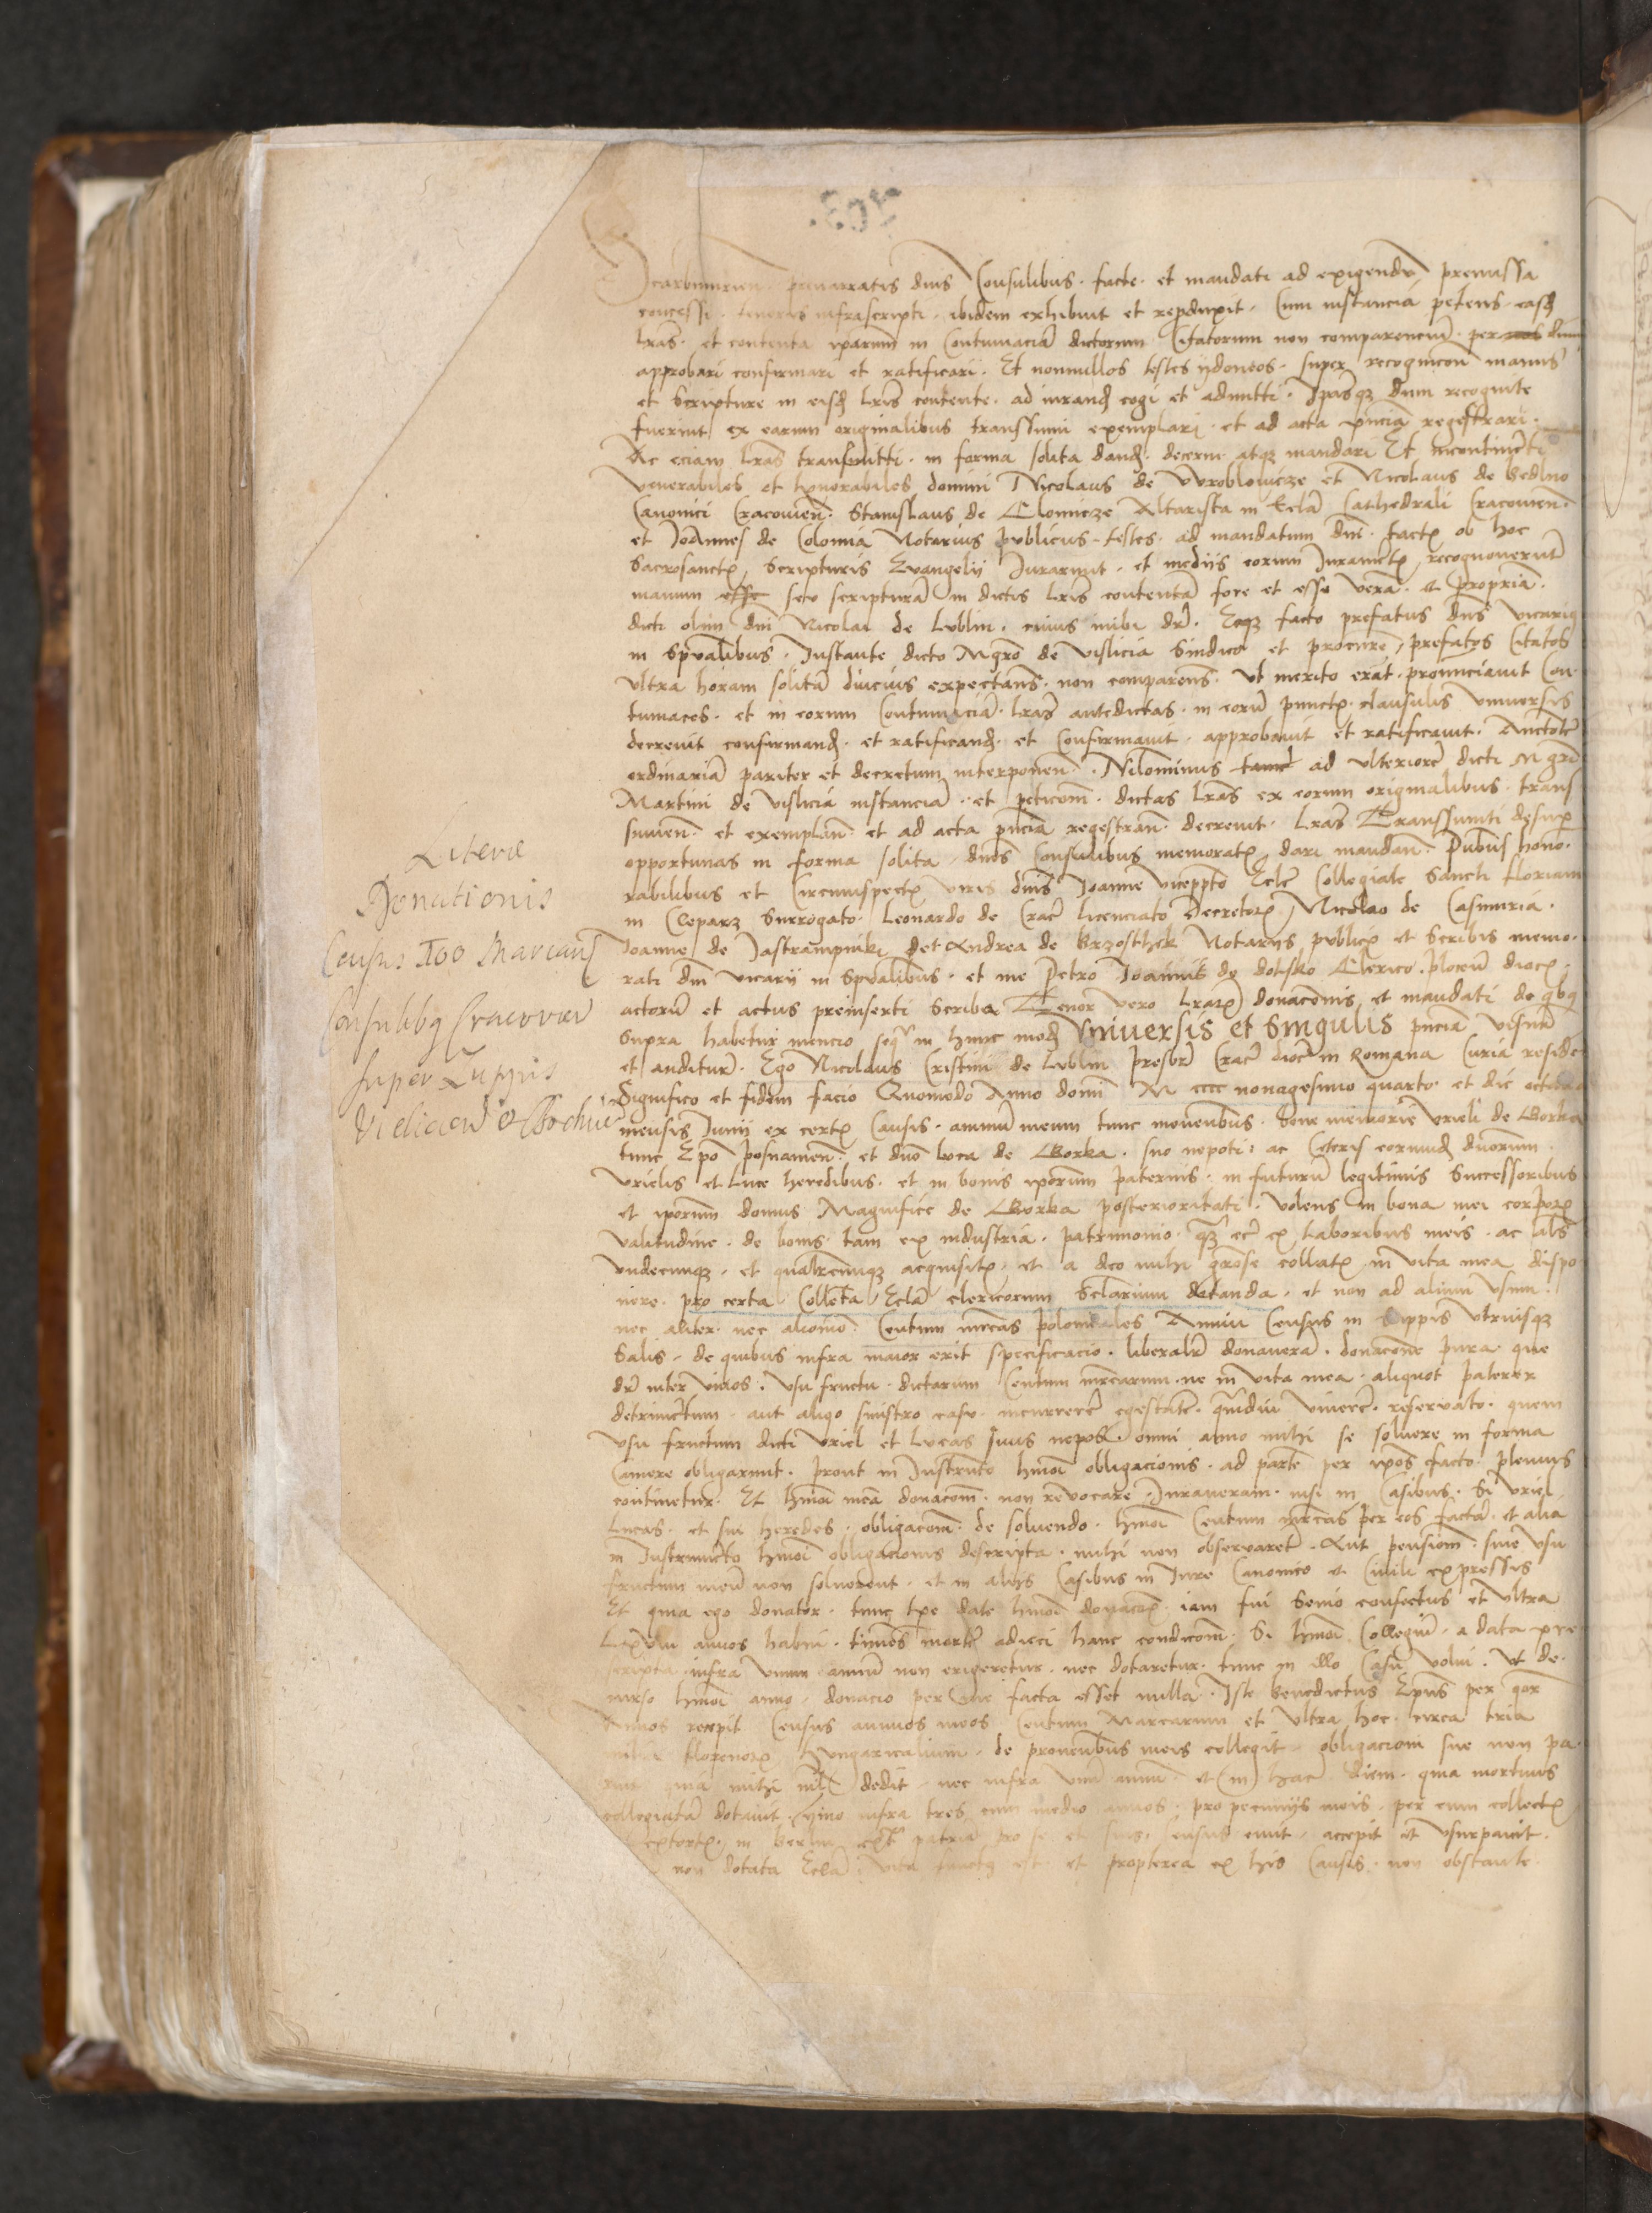 prenarratis dnis Consulibus · facte · et mandati ad exigendū premissa
concessi · tenoris infrascripti · ibidem exhibuit et reproduxit · Cum instancia petens · easd
lras · et contenta iparum in Contumaciā dictorum Citatorum non comparenciū · per dnm
approbari confirmari et ratificari · Et nonnullos testes ydoneos · super recognicoē manus
et scripture in eisd lris contente · ad iurand cogi et admitti · Ipasqz dum recognite
fuerint ex earum originalibus transsumi exemplari · et ad acta pncia regestrari ·
Ac eciam lras transmitti · in forma solita dand · decerni atqz mandari Et incontinēti
Venerabiles et honorabiles domini Nicolaus de Wroblowicze et Nicolaus de Bedlno
Canonici Cracovieñ · Stanislaus de Clonicze Altarista in Eclā Cathedrali Cracovieñ ·
et Joannes de Colonia Notarius publicus testes · ad mandatum dni · tactꝭ ob hoc
Sacrosanctꝭ Scripturis Evangelij Jurarunt · et medijs eorum Juramētꝭ recognoverūt
manum seu scripturā in dictis lris contentā fore et esse verā · et propriā ·
dicti olim dni Nicolai de Lublin · Eoqz facto prefatus dns vicariꝰ
in Spualibus · Instante dicto Mgro de Vislicia Sindico et procurē prefatos Citatos
ultra horam solitā diucius expectans · non comparens · Ut merito erat · pronunciavit Con-
tumaces · et in eorum Contumaciā · lras antedictas · in eorū punctꝭ clausulis Universis
decrevit confirmand · et ratificand · et Confirmavit · approbavit et ratificavit · Auctotē
ordinariā pariter et decretum interponeñ · Nilominus ad ulteriorē dicti Mgri
Martini de Vislicia instanciā · et peticom · dictas lras ex eorum originalibus · trans
sumeñ · et exemplañ · et ad acta pncia regestrañ · decrevit · lras Transsumti desup
opportunas in forma solita · dnis Consulibus memoratꝭ dari mandañ · Pntibus hono-
rabilibus et Circumspectꝭ viris dnis Joanne viceppto Eclē Collegiate Sancti Floriani
in Cleparz Surrogato · Leonardo de Crac licenciato Decretorꝭ Nicolao de Casimiria ·
Joanne de et Andrea de Brzosthek Notarijs publicꝭ et Scribis memo-
rati dni vicarij in Spualibus · et me Petro Joannis de Clerico · Ploceñ diocꝭ
actorū et actus preinserti Scriba Tenor vero lrarꝭ donacionis et mandati de qbꝰ
supra habetur mencio seqr in hunc mod Universis et singulis pncia visurꝭ
et auditurꝭ · Ego Nicolaus Cristini de Lublin presbr Crac dioc in Romana Curia residē
Significo et fidem facio Quomodo Anno domi M cccc nonagesimo quarto et die octava
mensis Junij ex certꝭ Causis · animū meum tunc moventibus · bone memorie Urieli de Gorka
tunc Epo Posnanieñ · et dno Luca de Gorka · suo nepoti · ac Ceteris eorumd duorum ·
Urielis et Luce heredibus · et in bonis iporum paternis · in futurū legitimis Successoribus
et iporum domus Magnifice de Gorka posterioritati · Volens in bona mei corporꝭ
valitudine · de bonis tam ex industria · patrimonio · qz ec ex laboribus meis · ac als
undecunqz · et qualrcunqz acquisitꝭ · et a deo mihi grose collatꝭ in vita mea dispo
nere · pro certa Collecta Eclā clericorum Sclarium dotanda · et non ad alium usum ·
nec aliter · nec aliomo · Centum mrcas polonicales Annui Census in Suppis Utriusqz
Salis · de quibus infra maior erit specificacio · liberalr donaverā · donacone pura · que
dr inter vivos · Usu fructu · dictarum Centum mrcarum · ne in vita mea · aliquot paterer
detrimētum · aut aliquo sinistro casu · incurrerē egestatē · quādiu viverē · reservato · quem
usu fructum dicti Uriel et Lucas suus nepos · omni anno mihi se solvere in forma
Camere obligarunt · prout in Instrumto hmoi obligacionis · ad partē per ipos facto plenius
continetur · Et hmoi meā donacom · non revocare Juraveram · nisi in Casibus · Si Uriel
Lucas · et sui heredes · obligacom · de solvendo · hmoi Centum mrcas per eos factā · et alia
in Instrumēto hmoi obligacionis descripta · mihi non observarēt · Aut pensiom · sive usu
fructum meū non solverent · et in alijs Casibus in Jure Canonico et Civili expressis
Et quia ego donator · tunc tpe date hmoi donacoꝭ iam fui senio confectus et ultra
annos habui · timēs mortē adieci hanc condicom · Si hmoi Collegiū · a data pre
scripta infra unum annū non erigeretur · nec dotaretur · tunc in illo Casu volui · Ut de-
curso hmoi anno · donacio per me facta esset nulla · Iste benedictus Epus per qor
Annos recepit Census annuos meos Centum Marcarum et ultra hoc · circa tria
milia florenorꝭ Hungaricalium · de proventibus meis collegit · obligacioni sue non pa-
ruit · quia mihi nil dedit · nec infra unū annū et in hac diem · quia mortuus
collegiatā dotavit · Ymo infra tres cum medio annos · pro pecunijs meis · per eum collectꝭ
extortꝭ · in patria pro se et suis census emit · accepit et usurpavit ·
non dotata Eclā vita functꝰ est · et propterea ex his Causis · non obstante
Literæ
Donationis
Census 100 Marcarū
Consulibꝰ Cracovien
super Zuppis
Vielicien et Bochnē